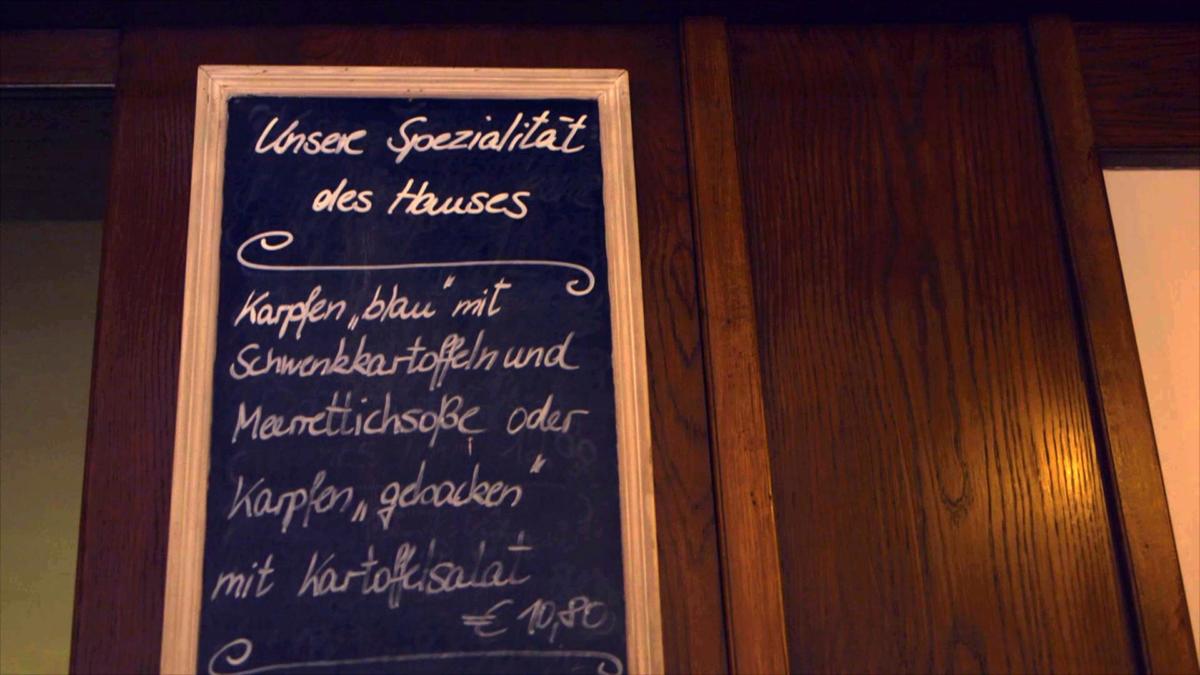 Unsere Spezialität
des Hauses
Karpfen „blau" mit
Schwenkkartoffeln und
Meerrettichsoße oder
Karpfen „gebacken"
mit Kartoffelsalat
€ 10,80